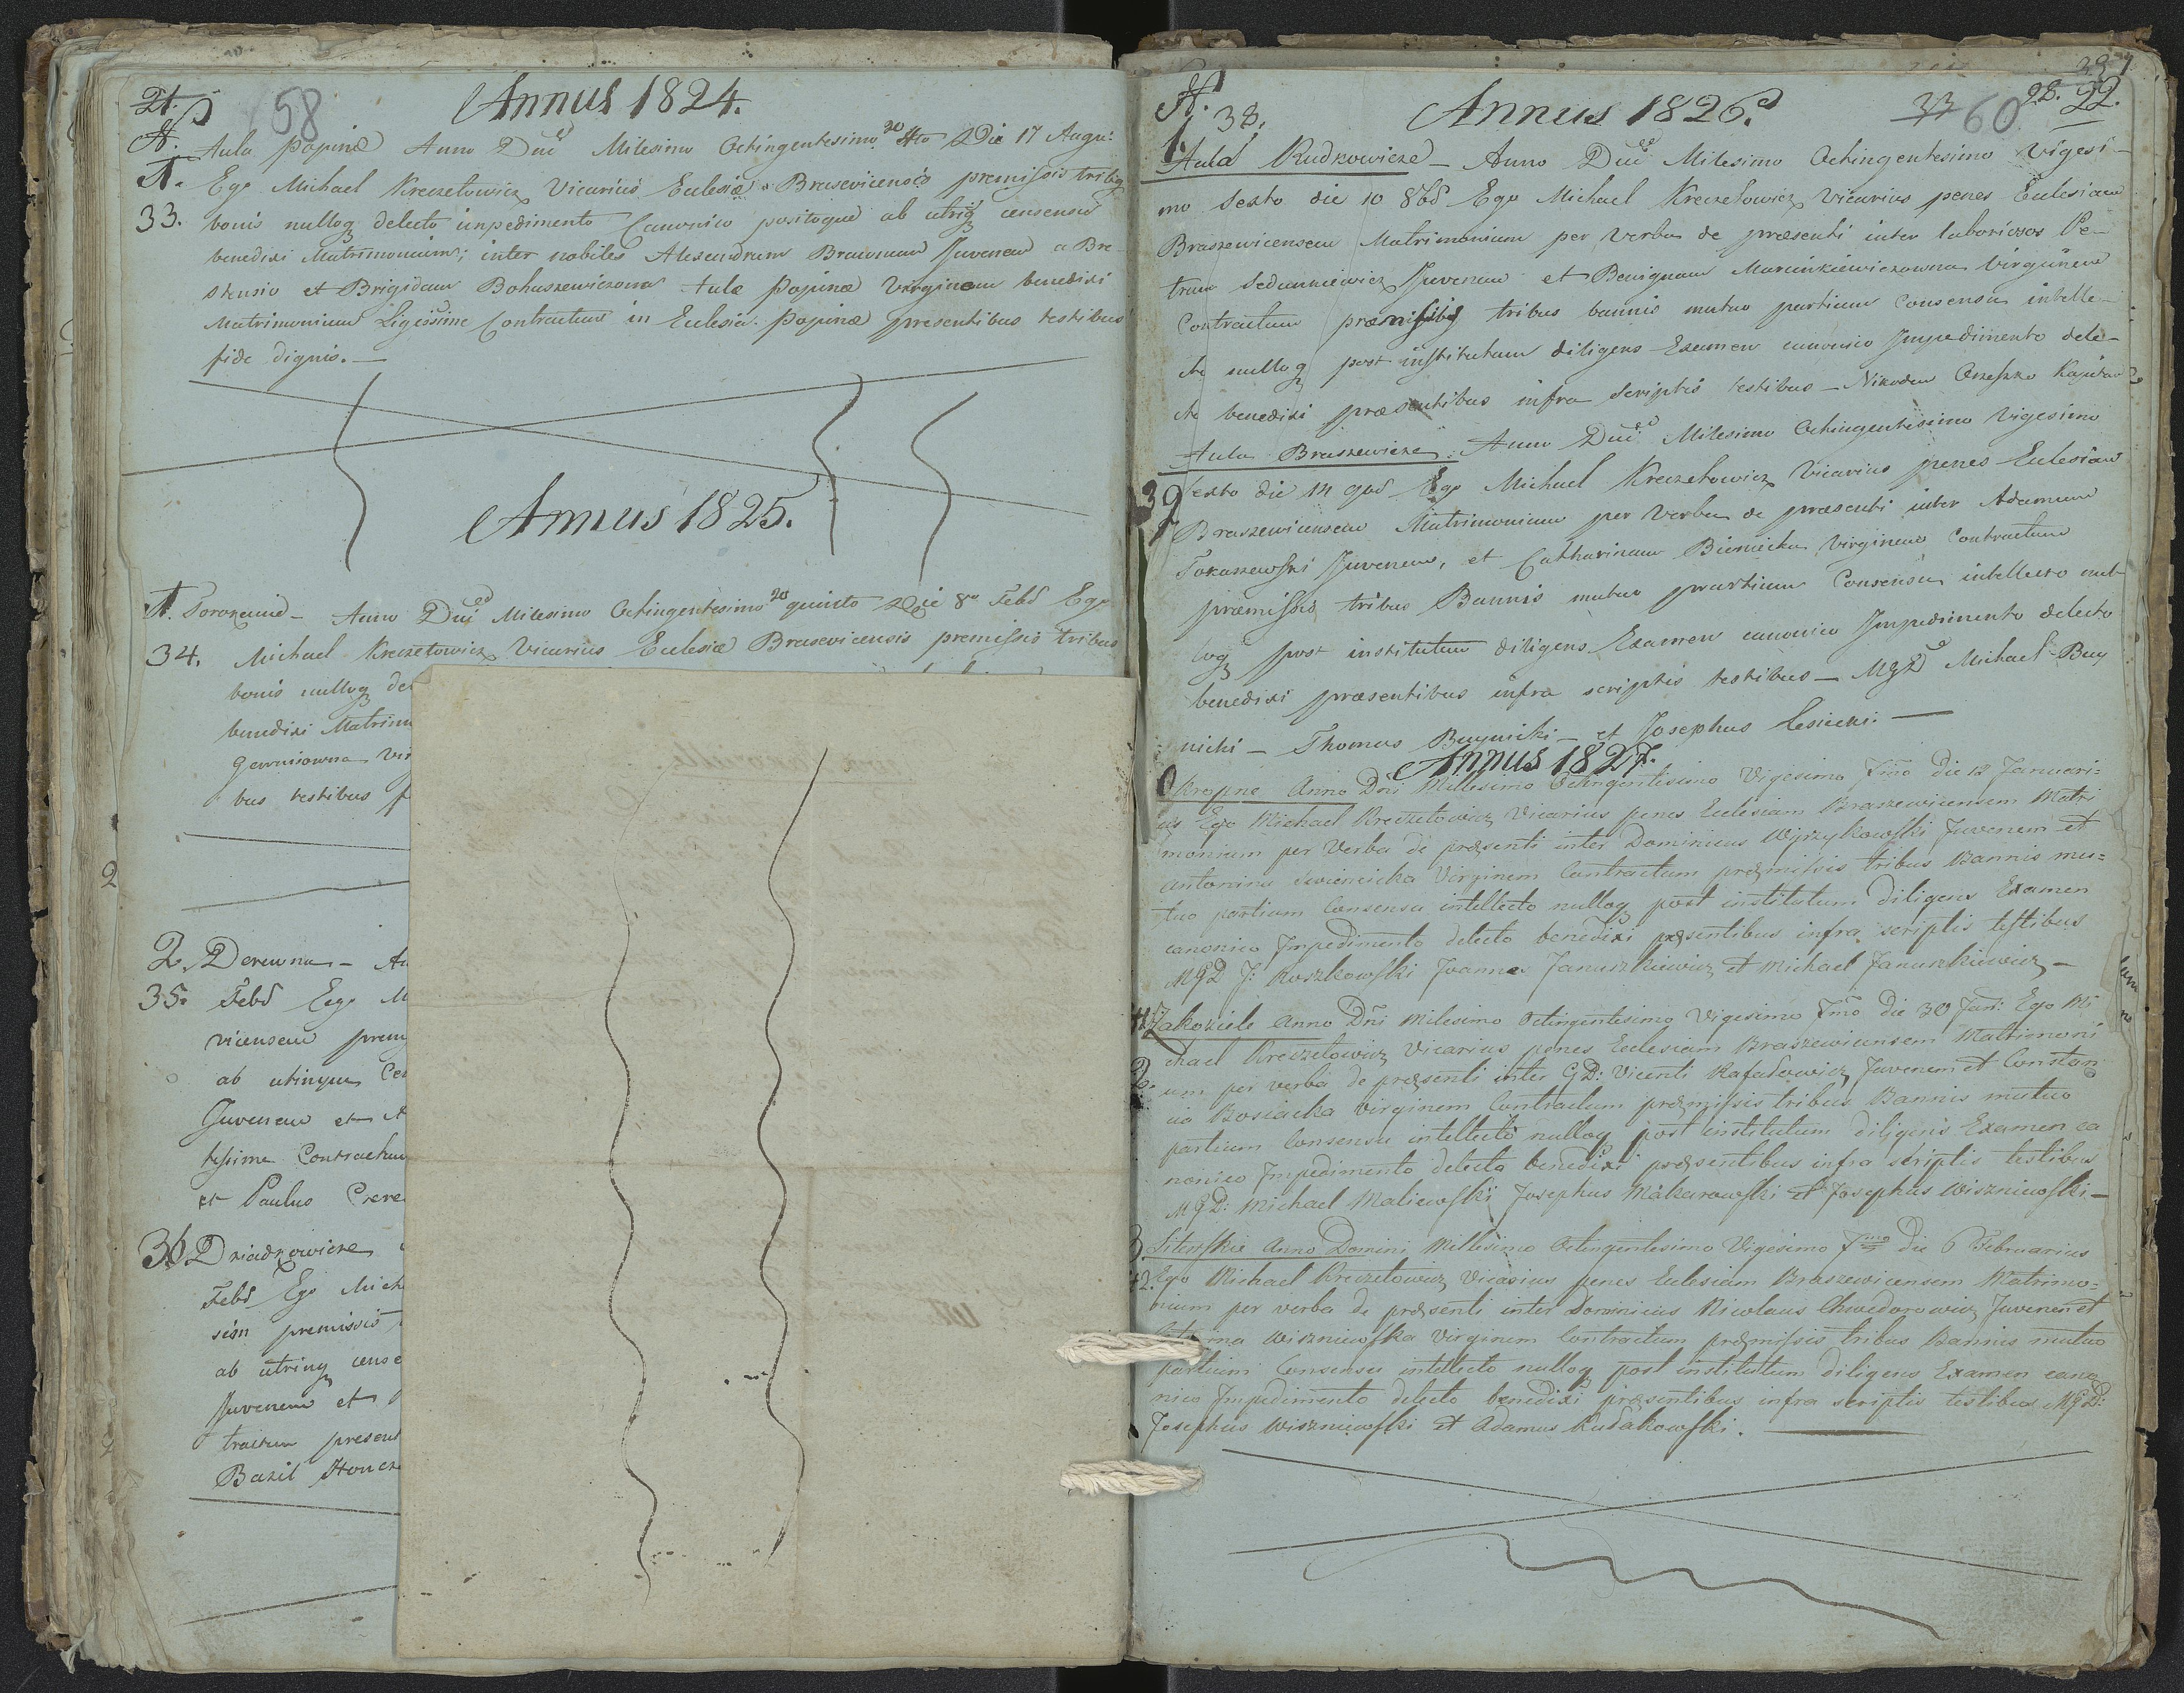 21.
58
Annus 1824.
A. Aula Popinæ Anno Dni Milesimo Octingentesimo 20 4to Die 17 Augu:
1. Ego Michael Kreczetowicz Vicarius Eulesiæ Brasevicensis premissis tribq
33. bonis nulloq delecto inpedimento Canonico positoque ab utriq censensu
benedixi Matrimonium; inter nobiles Alexandrum Juvenem a Bre
stensio et Brigidam Bohuszewiczowna Aulæ Popinæ Virginem benedixi
Matrimonium Ligissime Contractum in Eulesia Popinæ presentibus testibus
fide dignis.—
Annus 1825.
A. Torokanie – Anno Dni Milesimo Octingentesimo 20 quinto Die 8a Febr Ego
34. Michael Kreczetowicz Vicarius Eulesiæ Brasevicensis premissis tribus
bonis nulloq de
benedixi Matrim
Gawrisiowna Vir
bus testibus f
2. Derewna – An
35. Febr Ego M
vicensem prem
ab utinque Cen
Juvenem et A
tissime Contractum
et Paulus
36. Dziadkowicze
Febr Ego Mich
sión premissis
ab utrinq cense
Juvenem et
tractum present
Bazil
A.
1. 38.
Annus 1826.
33 60 28. 22.
Aula Rudkowicze – Anno Dni Milesimo Octingentesimo Vigesi–
mo Sexto die 10 8br Ego Michael Kreczetowicz Vicarius penes Eulesiam
Braszewicensem Matrimonium per Verba de præsenti inter laboriosos Pe–
trum Juvenem et Benignam Marcinkiewiczowna Virginem
Contractum præmissis tribus bannis mutuo partium Consensu intelle–
cto nulloq post institutum diligens Examen canonico Impedimento dele–
cto benedixi præsentibus infra scriptis testibus – Nikodem Orzeszko
Aula Braszewicze. Anno Dni Milesimo Octingentesimo Vigesimo
39 Sexto die 14 9br Ego Michael Kreczetowicz Vicarius penes Eulesiam
Braszewicensem Matrimonium per Verba de præsenti inter Adamum
Tokaszewski Juvenem, et Catharinam Biernicka Virginem Contractum
præmissis tribus Bannis mutuo partium Consensu intellecto nul–
loq post institutum diligens Examen canonico Impedimento delecto
benedixi præsentibus infra scriptis testibus – MGD Michael Buy
nicki – Thomas Buynicki – et Josephus Lesiecki —
Annus 1827.
Okropne Anno Dni Millesimo Octingentesimo Vigesimo 7mo die 12 Januari=
us Ego Michael Kreczetowicz Vicarius penes Eulesiam Braszewicensem Matri
monium per Verba de præsenti inter Dominicus Wyrzykowski Juvenem et
Antonina Virginem Contractum præmissis tribus Bannis mu=
tuo partium Consensu intellecto nulloq post institutum diligens Examen
canonico Impedimento delecto benedixi præsentibus infra scriptis testibus
MGD J: Roszkowski Joannes Januszkiewicz et Michael Januszkiewicz –
Zakoziele Anno Dni Milesimo Octingentesimo Vigesimo 7mo die 30 Jan: Ego Mi
2. chael Kreczetowicz Vicarius penes Eulesiam Braszewicensem Matrimoni
um per verba de præsenti inter GD: Vicenti Rafalowicz Juvenem et Constan
cia Bosiacka Virginem Contractum præmissis tribus Bannis mutuo
partium Consensu intellecto nulloq post institutum diligens Examen ca
nonico Impedimento delecto benedixi præsentibus infra scriptis testibus
MGD: Michael Maliewski Josephus Makarowski et Josephus Wiszniewski –
3 Litewskie Anno Domini Millesimo Octingentesimo Vigesimo 7mo die 6 Februarius
42. Ego Michael Kreczetowicz Vicarius penes Eulesiam Braszewicensem Matrimo=
nium per verba de præsenti inter Dominicus Nicolaus Chwedorowicz Juvenem et
Wiszniewska Virginem Contractum præmissis tribus Bannis mutuo
partium Consensu intellecto nulloq post institutum diligens Examen cano
nico Impedimento delecto benedixi præsentibus infra scriptis testibus MGD:
Josephus Wiszniewski et Adamus Rudakowski.